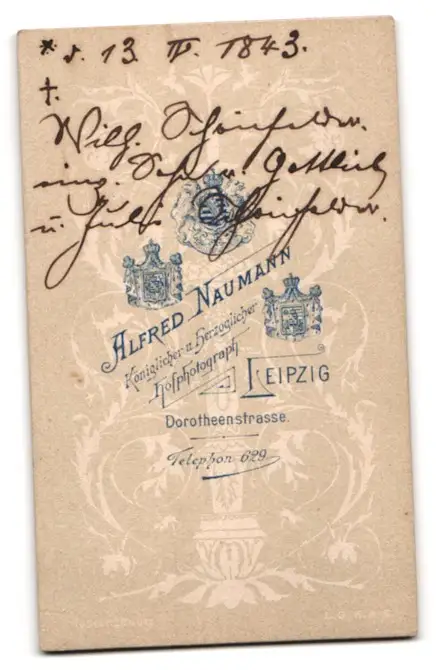 * d. 13. IV. 1843.
†.
Wilh. Schönfelder.
Sohn v. Gottlieb
u. Jul. Schönfelder.
ALFRED NAUMANN
Königlicher u. Herzoglicher
Hofphotograph
LEIPZIG
Dorotheenstrasse.
Telephon 629